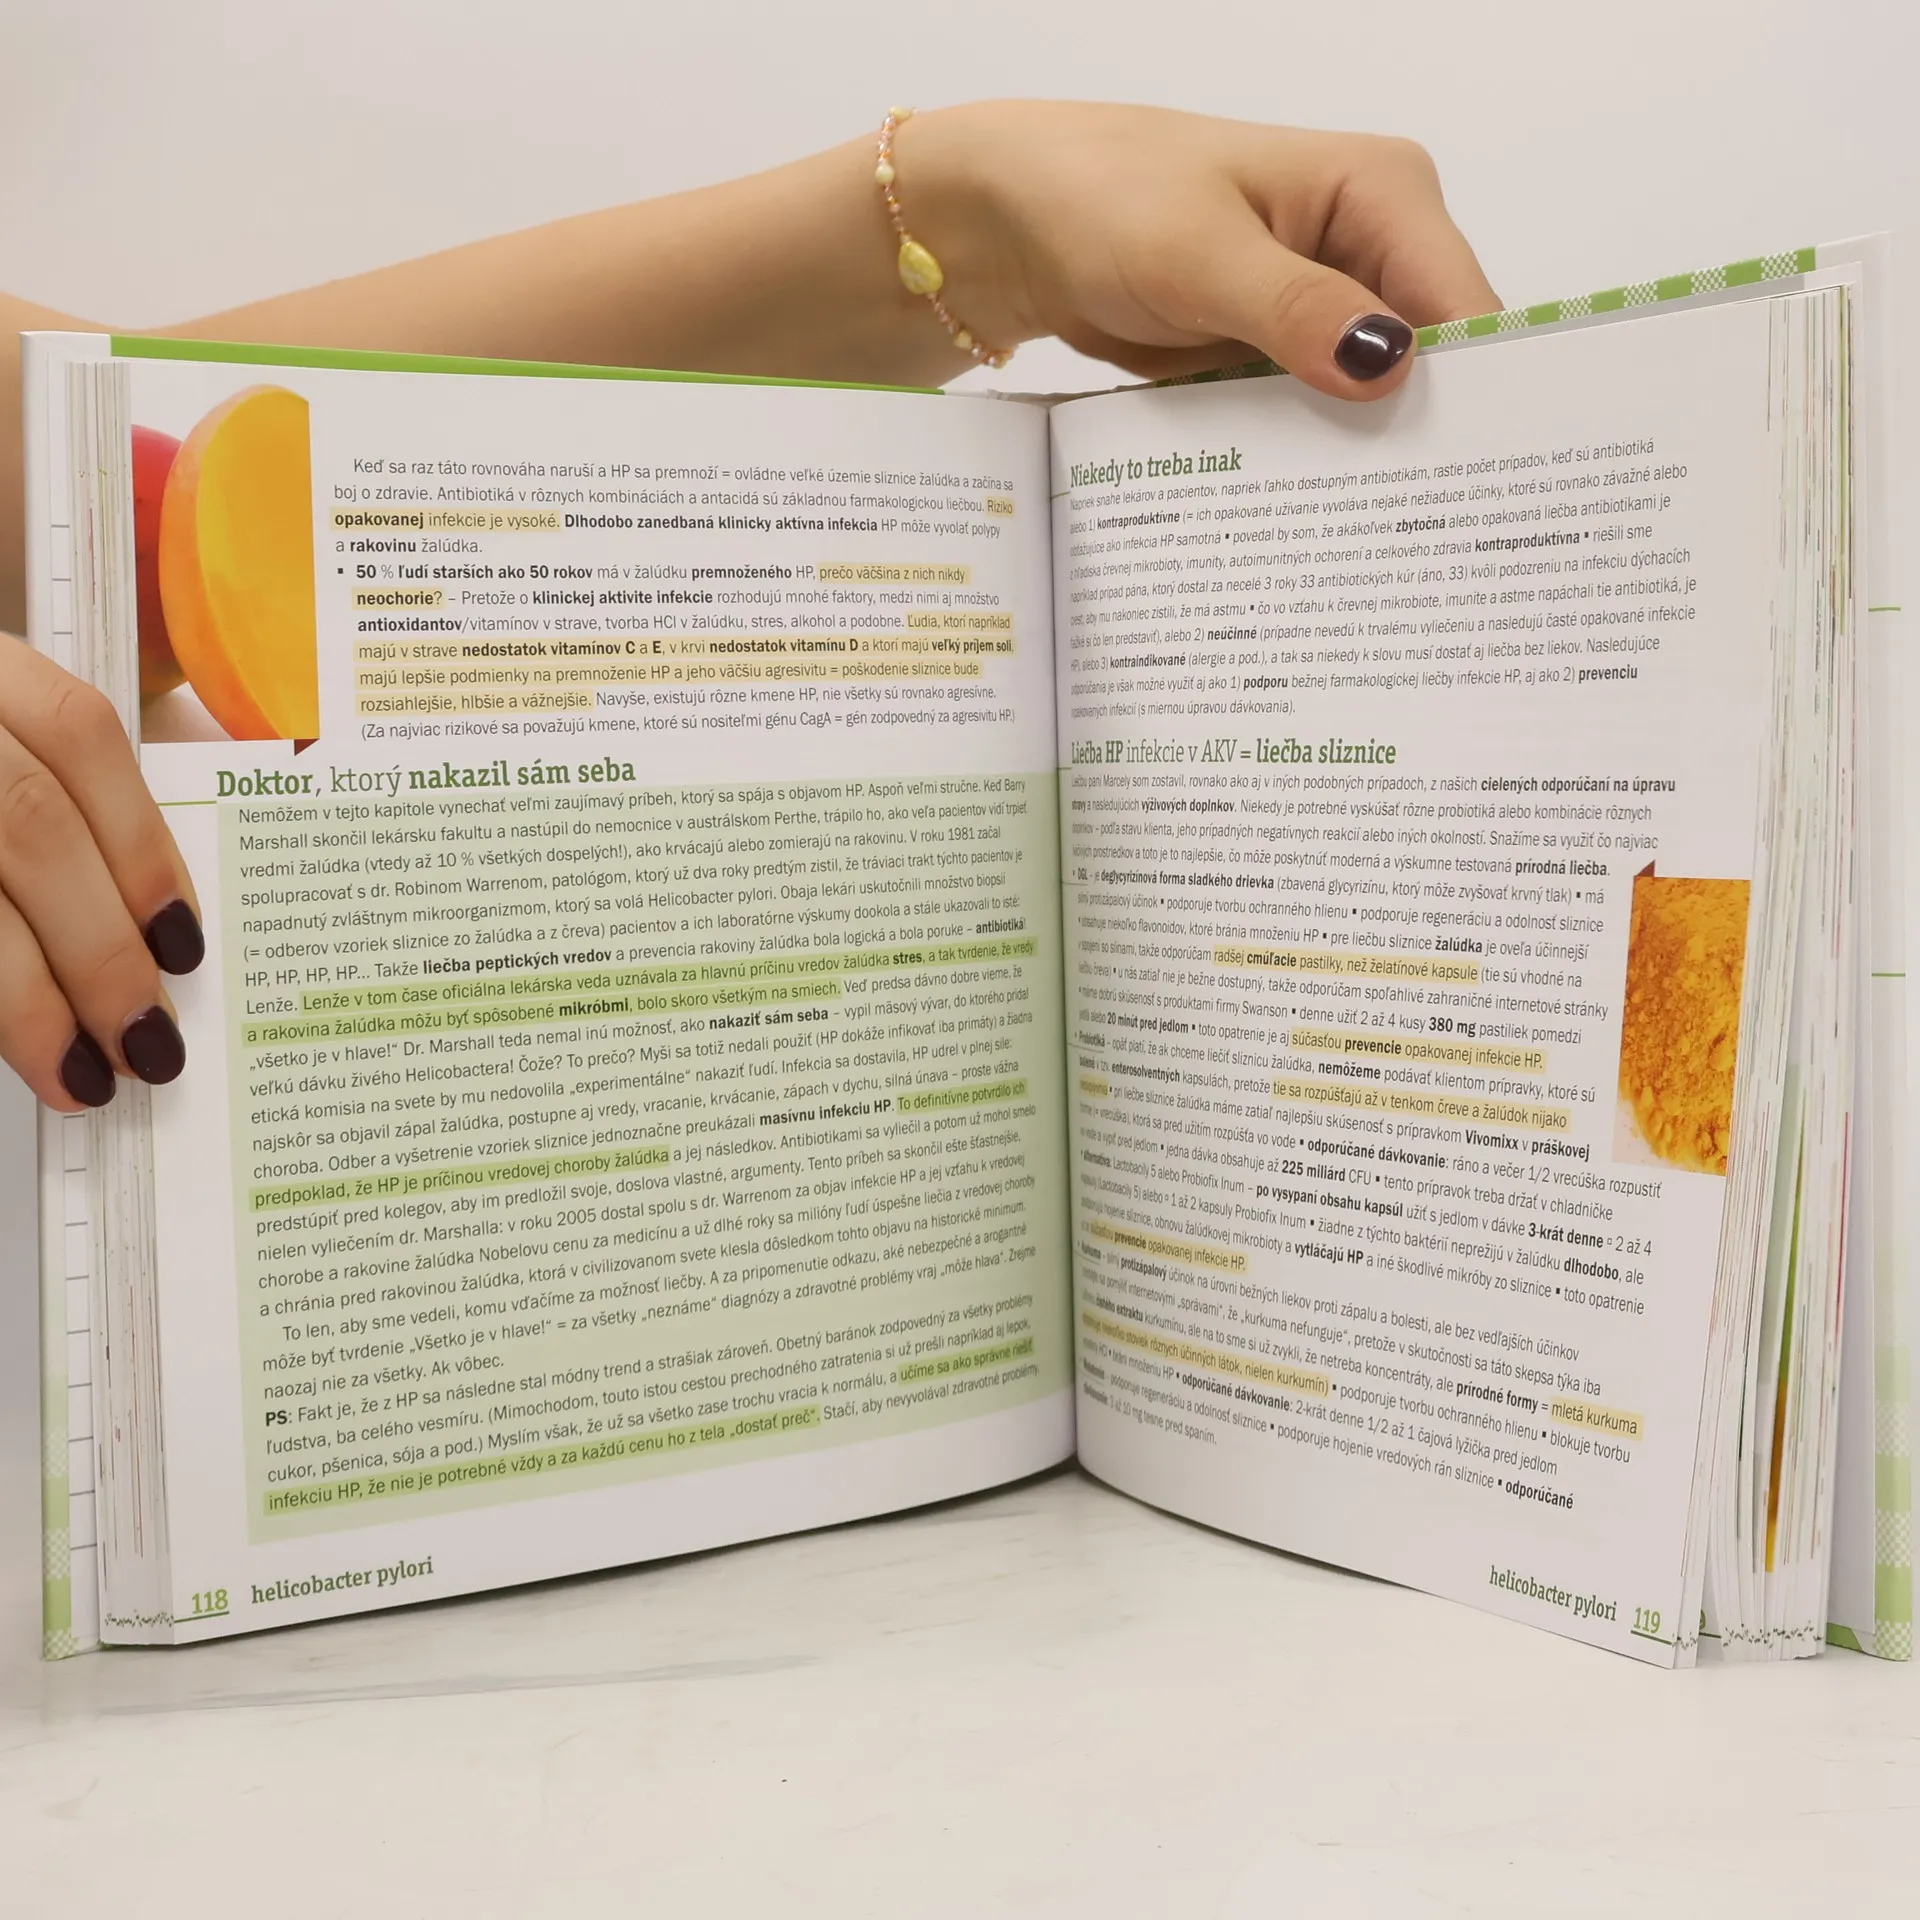 Keď sa raz táto rovnováha naruší a HP sa premnoží = ovládne veľké územie sliznice žalúdka a začína sa
boj o zdravie. Antibiotiká v rôznych kombináciách a antacidá sú základnou farmakologickou liečbou. Riziko
opakovanej infekcie je vysoké. Dlhodobo zanedbaná klinicky aktívna infekcia HP môže vyvolať polypy
a rakovinu žalúdka.
▪ 50 % ľudí starších ako 50 rokov má v žalúdku premnoženého HP, prečo väčšina z nich nikdy
neochorie? – Pretože o klinickej aktivite infekcie rozhodujú mnohé faktory, medzi nimi aj množstvo
antioxidantov/vitamínov v strave, tvorba HCl v žalúdku, stres, alkohol a podobne. Ľudia, ktorí napríklad
majú v strave nedostatok vitamínov C a E, v krvi nedostatok vitamínu D a ktorí majú veľký príjem soli,
majú lepšie podmienky na premnoženie HP a jeho väčšiu agresivitu = poškodenie sliznice bude
rozsiahlejšie, hlbšie a vážnejšie. Navyše, existujú rôzne kmene HP, nie všetky sú rovnako agresívne.
(Za najviac rizikové sa považujú kmene, ktoré sú nositeľmi génu CagA = gén zodpovedný za agresivitu HP.)
Doktor, ktorý nakazil sám seba
Nemôžem v tejto kapitole vynechať veľmi zaujímavý príbeh, ktorý sa spája s objavom HP. Aspoň veľmi stručne. Keď Barry
Marshall skončil lekársku fakultu a nastúpil do nemocnice v austrálskom Perthe, trápilo ho, ako veľa pacientov vidí trpieť
vredmi žalúdka (vtedy až 10 % všetkých dospelých!), ako krvácajú alebo zomierajú na rakovinu. V roku 1981 začal
spolupracovať s dr. Robinom Warrenom, patológom, ktorý už dva roky predtým zistil, že tráviaci trakt týchto pacientov je
napadnutý zvláštnym mikroorganizmom, ktorý sa volá Helicobacter pylori. Obaja lekári uskutočnili množstvo biopsií
(= odberov vzoriek sliznice zo žalúdka a z čreva) pacientov a ich laboratórne výskumy dookola a stále ukazovali to isté:
HP, HP, HP, HP... Takže liečba peptických vredov a prevencia rakoviny žalúdka bola logická a bola poruke – antibiotiká!
Lenže. Lenže v tom čase oficiálna lekárska veda uznávala za hlavnú príčinu vredov žalúdka stres, a tak tvrdenie, že vredy
a rakovina žalúdka môžu byť spôsobené mikróbmi, bolo skoro všetkým na smiech. Veď predsa dávno dobre vieme, že
„všetko je v hlave!“ Dr. Marshall teda nemal inú možnosť, ako nakaziť sám seba – vypil mäsový vývar, do ktorého pridal
veľkú dávku živého Helicobactera! Čože? To prečo? Myši sa totiž nedali použiť (HP dokáže infikovať iba primáty) a žiadna
etická komisia na svete by mu nedovolila „experimentálne“ nakaziť ľudí. Infekcia sa dostavila, HP udrel v plnej sile:
najskôr sa objavil zápal žalúdka, postupne aj vredy, vracanie, krvácanie, zápach v dychu, silná únava – proste vážna
choroba. Odber a vyšetrenie vzoriek sliznice jednoznačne preukázali masívnu infekciu HP. To definitívne potvrdilo ich
predpoklad, že HP je príčinou vredovej choroby žalúdka a jej následkov. Antibiotikami sa vyliečil a potom už mohol smelo
predstúpiť pred kolegov, aby im predložil svoje, doslova vlastné, argumenty. Tento príbeh sa skončil ešte šťastnejšie,
nielen vyliečením dr. Marshalla: v roku 2005 dostal spolu s dr. Warrenom za objav infekcie HP a jej vzťahu k vredovej
chorobe a rakovine žalúdka Nobelovu cenu za medicínu a už dlhé roky sa milióny ľudí úspešne liečia z vredovej choroby
a chránia pred rakovinou žalúdka, ktorá v civilizovanom svete klesla dôsledkom tohto objavu na historické minimum.
To len, aby sme vedeli, komu vďačíme za možnosť liečby. A za pripomenutie odkazu, aké nebezpečné a arogantné
môže byť tvrdenie „Všetko je v hlave!“ = za všetky „neznáme“ diagnózy a zdravotné problémy vraj „môže hlava“. Zrejme
naozaj nie za všetky. Ak vôbec.
PS: Fakt je, že z HP sa následne stal módny trend a strašiak zároveň. Obetný baránok zodpovedný za všetky problémy
ľudstva, ba celého vesmíru. (Mimochodom, touto istou cestou prechodného zatratenia si už prešli napríklad aj lepok,
cukor, pšenica, sója a pod.) Myslím však, že už sa všetko zase trochu vracia k normálu, a učíme sa ako správne riešiť
infekciu HP, že nie je potrebné vždy a za každú cenu ho z tela „dostať preč“. Stačí, aby nevyvolával zdravotné problémy.
118 helicobacter pylori
Niekedy to treba inak
Napriek snahe lekárov a pacientov, napriek ľahko dostupným antibiotikám, rastie počet prípadov, keď sú antibiotiká
alebo 1) kontraproduktívne (= ich opakované užívanie vyvoláva nejaké nežiaduce účinky, ktoré sú rovnako závažné alebo
obťažujúce ako infekcia HP samotná ▪ povedal by som, že akákoľvek zbytočná alebo opakovaná liečba antibiotikami je
z hľadiska črevnej mikrobioty, imunity, autoimunitných ochorení a celkového zdravia kontraproduktívna ▪ riešili sme
napríklad prípad pána, ktorý dostal za necelé 3 roky 33 antibiotických kúr (áno, 33) kvôli podozreniu na infekciu dýchacích
ciest, aby mu nakoniec zistili, že má astmu ▪ čo vo vzťahu k črevnej mikrobiote, imunite a astme napáchali tie antibiotiká, je
ťažké si čo len predstaviť), alebo 2) neúčinné (prípadne nevedú k trvalému vyliečeniu a nasledujú časté opakované infekcie
HP), alebo 3) kontraindikované (alergie a pod.), a tak sa niekedy k slovu musí dostať aj liečba bez liekov. Nasledujúce
odporúčania je však možné využiť aj ako 1) podporu bežnej farmakologickej liečby infekcie HP, aj ako 2) prevenciu
opakovaných infekcií (s miernou úpravou dávkovania).
Liečba HP infekcie v AKV = liečba sliznice
Liečbu pani Marcely som zostavil, rovnako ako aj v iných podobných prípadoch, z našich cielených odporúčaní na úpravu
stravy a nasledujúcich výživových doplnkov. Niekedy je potrebné vyskúšať rôzne probiotiká alebo kombinácie rôznych
doplnkov – podľa stavu klienta, jeho prípadných negatívnych reakcií alebo iných okolností. Snažíme sa využiť čo najviac
prostriedkov a toto je to najlepšie, čo môže poskytnúť moderná a výskumne testovaná prírodná liečba.
▪ DGL – je deglycyrizínová forma sladkého drievka (zbavená glycyrizínu, ktorý môže zvyšovať krvný tlak) ▪ má
silný protizápalový účinok ▪ podporuje tvorbu ochranného hlienu ▪ podporuje regeneráciu a odolnosť sliznice
▪ obsahuje niekoľko flavonoidov, ktoré bránia množeniu HP ▪ pre liečbu sliznice žalúdka je oveľa účinnejší
v spojení so slinami, takže odporúčam radšej cmúľacie pastilky, než želatínové kapsule (tie sú vhodné na
liečbu čreva) ▪ u nás zatiaľ nie je bežne dostupný, takže odporúčam spoľahlivé zahraničné internetové stránky
▪ máme dobrú skúsenosť s produktami firmy Swanson ▪ denne užiť 2 až 4 kusy 380 mg pastiliek pomedzi
jedlá alebo 20 minút pred jedlom ▪ toto opatrenie je aj súčasťou prevencie opakovanej infekcie HP.
▪ Probiotiká – opäť platí, že ak chceme liečiť sliznicu žalúdka, nemôžeme podávať klientom prípravky, ktoré sú
balené v tzv. enterosolventných kapsulách, pretože tie sa rozpúšťajú až v tenkom čreve a žalúdok nijako
▪ pri liečbe sliznice žalúdka máme zatiaľ najlepšiu skúsenosť s prípravkom Vivomixx v práškovej
forme (= vrecúška), ktorá sa pred užitím rozpúšťa vo vode ▪ odporúčané dávkovanie: ráno a večer 1/2 vrecúška rozpustiť
vo vode a vypiť pred jedlom ▪ jedna dávka obsahuje až 225 miliárd CFU ▪ tento prípravok treba držať v chladničke
▪ alternatíva: Lactobacily 5 alebo Probiofix Inum – po vysypaní obsahu kapsúl užiť s jedlom v dávke 3-krát denne ▫ 2 až 4
kapsuly (Lactobacily 5) alebo ▫ 1 až 2 kapsuly Probiofix Inum ▪ žiadne z týchto baktérií neprežijú v žalúdku dlhodobo, ale
podporujú hojenie sliznice, obnovu žalúdkovej mikrobioty a vytláčajú HP a iné škodlivé mikróby zo sliznice ▪ toto opatrenie
je súčasťou prevencie opakovanej infekcie HP.
▪ Kurkuma – silný protizápalový účinok na úrovni bežných liekov proti zápalu a bolesti, ale bez vedľajších účinkov
sa pomýliť internetovými „správami“, že „kurkuma nefunguje“, pretože v skutočnosti sa táto skepsa týka iba
čistého extraktu kurkumínu, ale na to sme si už zvykli, že netreba koncentráty, ale prírodné formy = mletá kurkuma
niekoľko stoviek rôznych účinných látok, nielen kurkumín) ▪ podporuje tvorbu ochranného hlienu ▪ blokuje tvorbu
▪ bráni množeniu HP ▪ odporúčané dávkovanie: 2-krát denne 1/2 až 1 čajová lyžička pred jedlom
▪ podporuje regeneráciu a odolnosť sliznice ▪ podporuje hojenie vredových rán sliznice ▪ odporúčané
dávkovanie: 3 až 10 mg tesne pred spaním.
helicobacter pylori 119